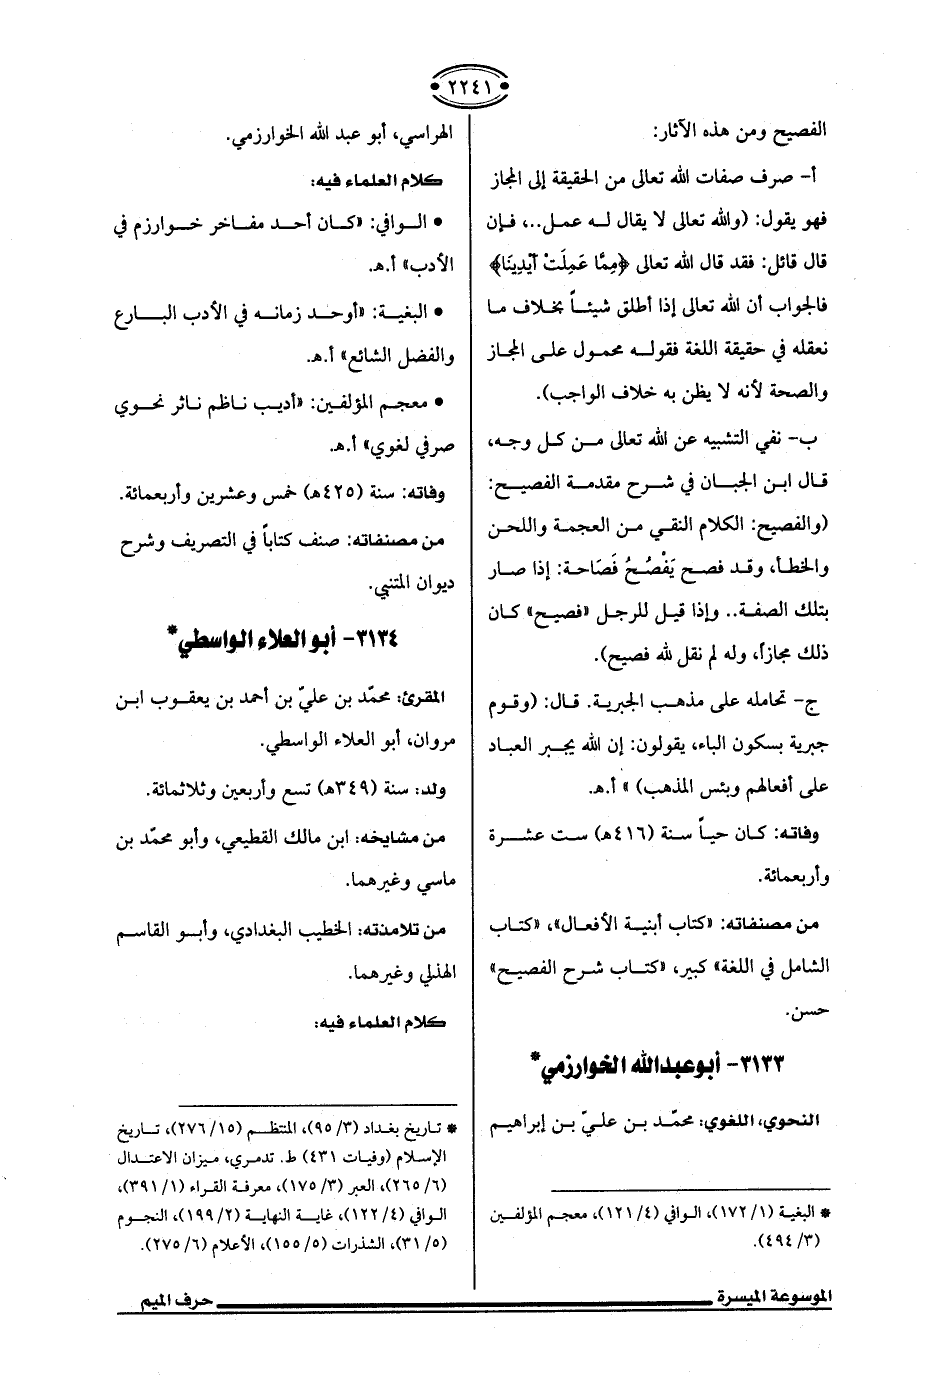 ٢٢٤١
الفصيح ومن هذه الآثار:
أ- صرف صفات الله تعالى من الحقيقة إلى المجاز
فهو يقول: (والله تعالى لا يقال له عمل..، فإن
قال قائل: فقد قال الله تعالى ﴿مِمَّا عَمِلَتْ أَيْدِينَا﴾
فالجواب أن الله تعالى إذا أطلق شيئاً بخلاف ما
نعقله في حقيقة اللغة فقوله محمول على المجاز
والصحة لأنه لا يظن به خلاف الواجب).
ب- نفي التشبيه عن الله تعالى من كل وجه،
قال ابن الجبان في شرح مقدمة الفصيح:
(والفصيح: الكلام النقي من العجمة واللحن
والخطأ، وقد فصح يَفْصُحُ فَصَاحة: إذا صار
بتلك الصفة.. وإذا قيل للرجل «فصيح» كان
ذلك مجازاً، وله لم نقل لله فصيح).
ج- تحامله على مذهب الجبرية. قال: (وقوم
جبرية بسكون الباء، يقولون: إن الله يجبر العباد
على أفعالهم وبئس المذهب) » أ.هـ.
وفاته: كان حياً سنة (٤١٦هـ) ست عشرة
وأربعمائة.
من مصنفاته: «كتاب أبنية الأفعال»، «كتاب
الشامل في اللغة» كبير، «كتاب شرح الفصيح»
حسن.
٣١٣٣- أبو عبدالله الخوارزمي*
النحوي، اللغوي: محمّد بن عليّ بن إبراهيم
* البغية (١/ ١٧٢)، الوافي (٤/ ١٢١)، معجم المؤلفين
(٣/ ٤٩٤).
الهراسي، أبو عبد الله الخوارزمي.
كلام العلماء فيه:
• الوافي: «كان أحد مفاخر خوارزم في
الأدب» أ.هـ.
• البغية: «أوحد زمانه في الأدب البارع
والفضل الشائع» أ.هـ.
• معجم المؤلفين: «أديب ناظم ناثر نحوي
صرفي لغوي» أ.هـ.
وفاته: سنة (٤٢٥هـ) خمس وعشرين وأربعمائة.
من مصنفاته: صنف كتاباً في التصريف وشرح
ديوان المتنبي.
٣١٣٤- أبو العلاء الواسطي*
المقرئ: محمّد بن عليّ بن أحمد بن يعقوب ابن
مروان، أبو العلاء الواسطي.
ولد: سنة (٣٤٩هـ) تسع وأربعين وثلاثمائة.
من مشايخه: ابن مالك القطيعي، وأبو محمّد بن
ماسي وغيرهما.
من تلامذته: الخطيب البغدادي، وأبو القاسم
الهذلي وغيرهما.
كلام العلماء فيه:
* تاريخ بغداد (٣/ ٩٥)، المنتظم (١٥/ ٢٧٦)، تاريخ
الإسلام (وفيات ٤٣١) ط. تدمري، ميزان الاعتدال
(٦/ ٢٦٥)، العبر (٣/ ١٧٥)، معرفة القراء (١/ ٣٩١)،
الوافي (٤/ ١٢٢)، غاية النهاية (٢/ ١٩٩)، النجوم
(٥/ ٣١)، الشذرات (٥/ ١٥٥)، الأعلام (٦/ ٢٧٥).
الموسوعة الميسرة
حرف الميم